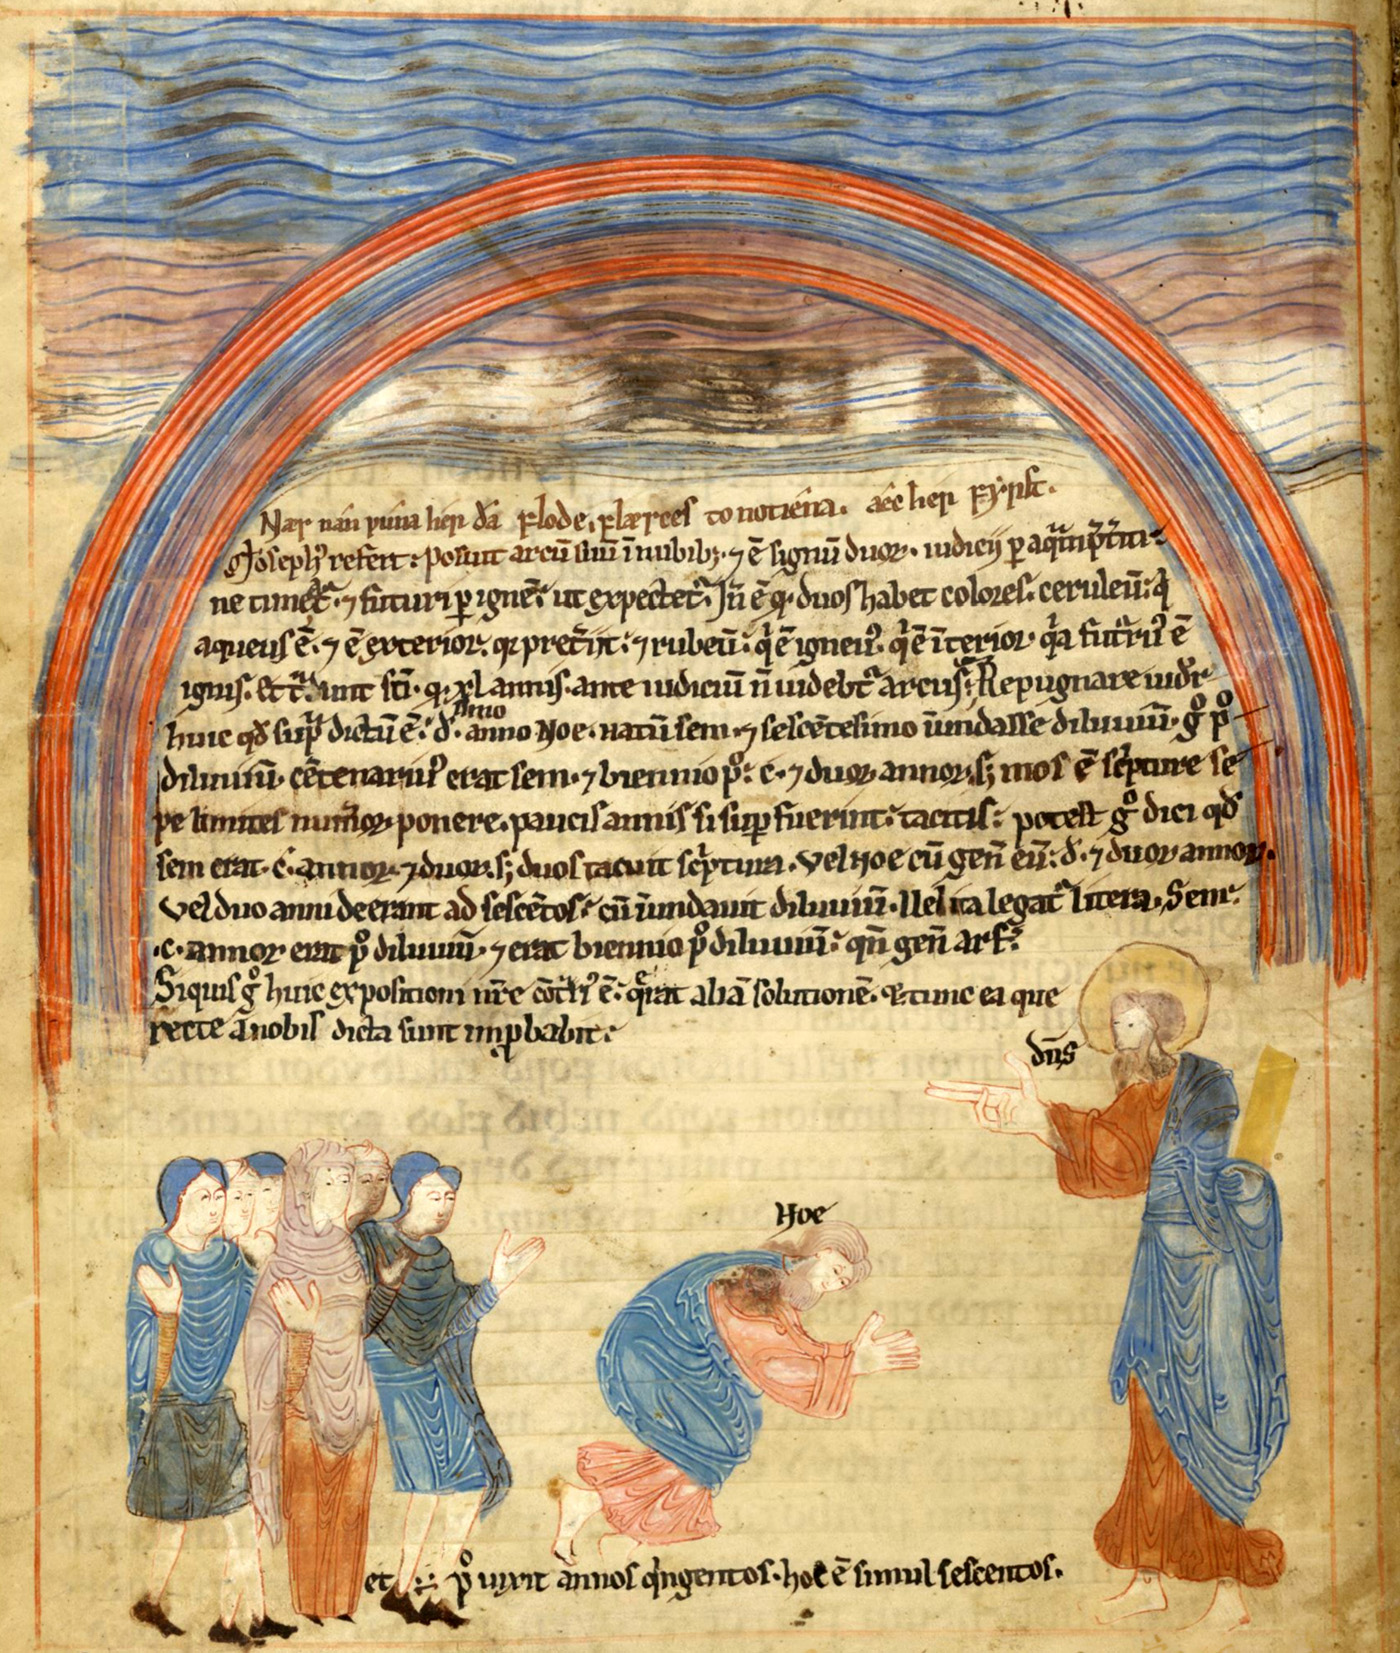 Nær nan ƿuna her ða flode, flæscес to notiena. ac her fyrst.
Josephꝰ refert: posuit arcū suū ī nubibꝫ. ⁊ ē signū duoꝝ. iudicij p aquā p̄t̄iti:
ne timeat᷑. ⁊ futuri p ignē: ut expectet᷑. Jn̄ ē ꝙ duos habet colores: ceruleū: q̇
aqueus ē. ⁊ ē exterior. q̇ pret̄ijt: ⁊ rubeū: q̇ ē igneꝰ. q̇ ē īterior. q̇a fut᷑rꝰ ē
ignis. et dn̄t sc̄i. ꝙ xl annis. ante iudiciū n̄ uidebit᷑ arcus. Repugnare uidet᷑
huic qd̄ sup̄ dictū ē: d. p̄mo anno Noe. natū sem. ⁊ sescētesimo īundasse diluuiū. gͦ pͦ
diluuiū. cētenariꝰ erat sem. ⁊ biennio pͦ: c. ⁊ duoꝝ annoꝝ. sꝫ mos ē sc̄pture se
pe limites num̄oꝝ ponere. paucis annis si sup fuerint: tacitis: potest gͦ dici qd̄
sem erat. c. annoꝝ. ⁊ duoꝝ. sꝫ duos tacuit sc̄ptura. vel Noe cū gen̄ eū: d. ⁊ duoꝝ annoꝝ.
vel duo anni deerant ad sescētos: cū īundauit diluuiū. Uel ita legat᷑ litera. Sem:
.c. annoꝝ erat pͦ diluuiū. ⁊ erat biennio pͦ diluuiū: qn̄ gen̄ arf:
Siquis gͦ huic expositioni nr̄e cōt̄riꝰ ē: q̄rat aliā solutionē. ⁊ tunc ea que
recte a nobis dicta sunt imp̱babit:
dn̄s
Noe
et pͦ uixit annos q̇ngentos. hoc ē simul sescentos.